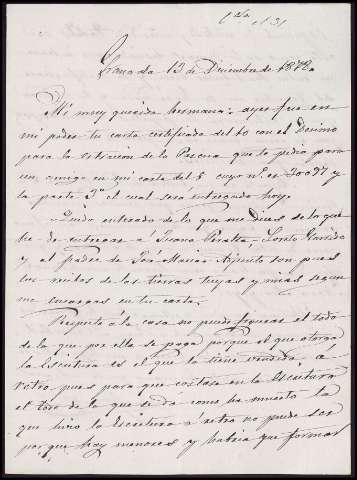 Granada 13 de Diciembre de 1872
Mi muy querida hermana: ayer fue en
mi poder tu carta certificada del 10 con el Decimo
para la estracion de la Pascua que te pedia para
un amigo en mi carta del 5 cuyo nº es 20097 y
la parte 3ª el cual será entregado hoy.
Quedo enterado de lo que me dices de lo que
he de entregar á Juana Peralta, Loreto Garrido
y al padre de José María
reditos de las tierras tuyas y mias segun
me encargas en tu carta.
Respecto á la casa no puede figurar el todo
de lo que por ella se paga porque el que otorga
la Escritura es el que la tiene vendida á
retro, pues para que costase en la Escritura
el todo de lo que se da como ha muerto la
que hizo la Escritura á retro no puede ser
porque hay menores y habria que formar